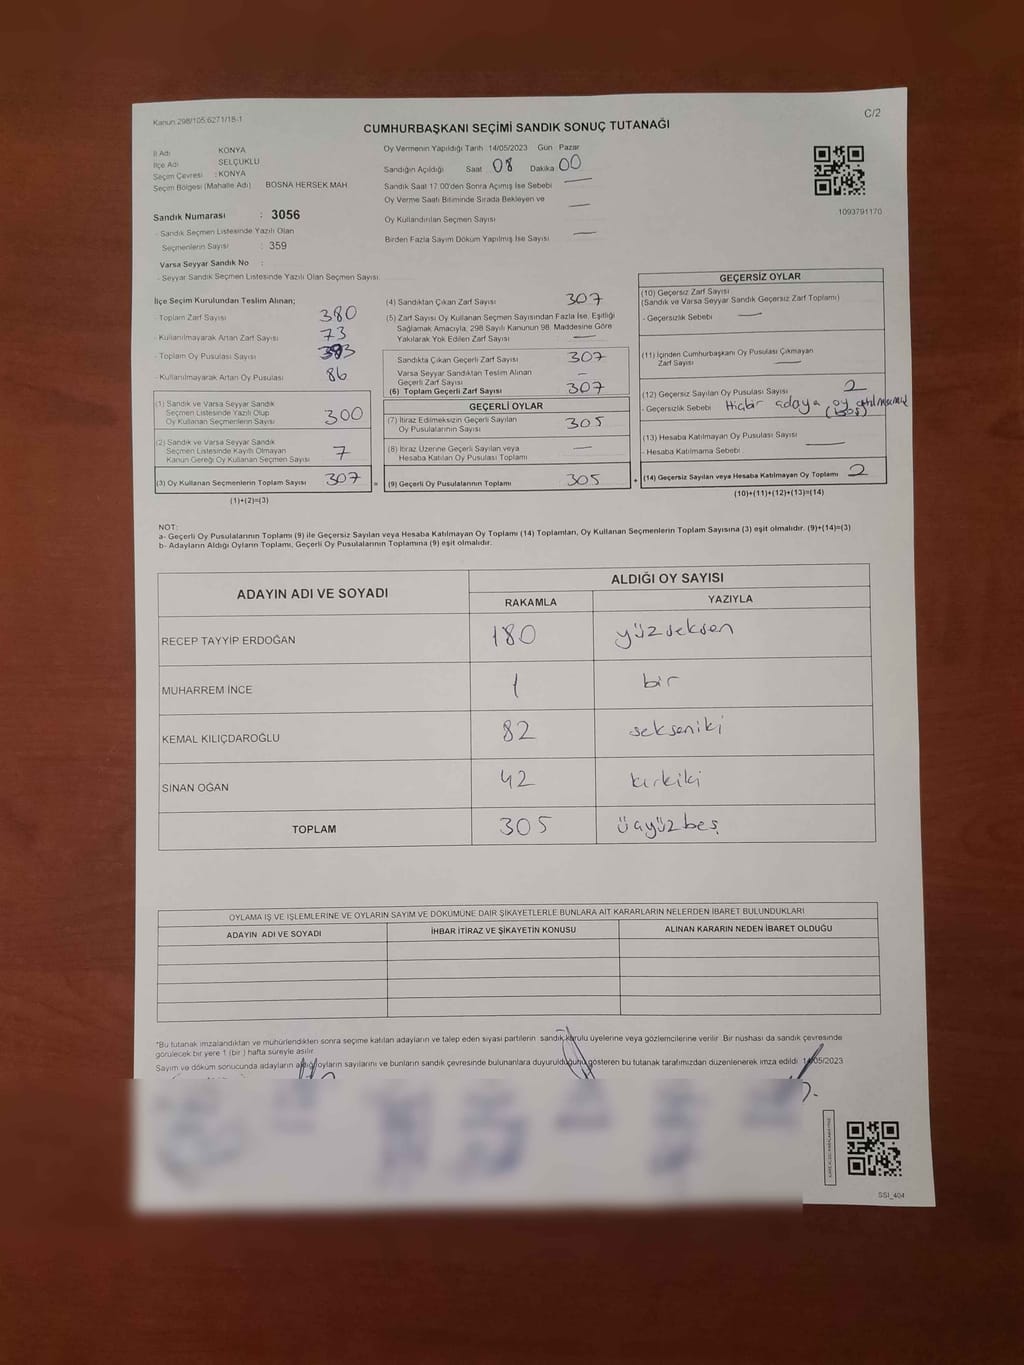 Kanun 298/105;6271/18-1
C/2
CUMHURBAŞKANI SEÇİMİ SANDIK SONUÇ TUTANAĞI
İl Adı KONYA
İlçe Adı SELÇUKLU
Seçim Çevresi : KONYA
Seçim Bölgesi (Mahalle Adı) BOSNA HERSEK MAH.
Sandık Numarası : 3056
- Sandık Seçmen Listesinde Yazılı Olan
Seçmenlerin Sayısı : 359
Varsa Seyyar Sandık No :
- Seyyar Sandık Seçmen Listesinde Yazılı Olan Seçmen Sayısı
Oy Vermenin Yapıldığı Tarih 14/05/2023 Gün Pazar
Sandığın Açıldığı Saat 08 Dakika 00
Sandık Saat 17:00'den Sonra Açılmış İse Sebebi
Oy Verme Saati Bitiminde Sırada Bekleyen ve
Oy Kullandırılan Seçmen Sayısı
Birden Fazla Sayım Döküm Yapılmış İse Sayısı
1093791170
İlçe Seçim Kurulundan Teslim Alınan;
- Toplam Zarf Sayısı 380
- Kullanılmayarak Artan Zarf Sayısı 73
- Toplam Oy Pusulası Sayısı
- Kullanılmayarak Artan Oy Pusulası 86
(1) Sandık ve Varsa Seyyar Sandık
Seçmen Listesinde Yazılı Olup
Oy Kullanan Seçmenlerin Sayısı 300
(2) Sandık ve Varsa Seyyar Sandık
Seçmen Listesinde Kayıtlı Olmayan
Kanun Gereği Oy Kullanan Seçmen Sayısı 7
(3) Oy Kullanan Seçmenlerin Toplam Sayısı 307 =
(1)+(2)=(3)
(4) Sandıktan Çıkan Zarf Sayısı 307
(5) Zarf Sayısı Oy Kullanan Seçmen Sayısından Fazla İse, Eşitliği
Sağlamak Amacıyla, 298 Sayılı Kanunun 98. Maddesine Göre
Yakılarak Yok Edilen Zarf Sayısı
Sandıkta Çıkan Geçerli Zarf Sayısı 307
Varsa Seyyar Sandıktan Teslim Alınan
Geçerli Zarf Sayısı
(6) Toplam Geçerli Zarf Sayısı 307
GEÇERLİ OYLAR
(7) İtiraz Edilmeksizin Geçerli Sayılan
Oy Pusulalarının Sayısı 305
(8) İtiraz Üzerine Geçerli Sayılan veya
Hesaba Katılan Oy Pusulası Toplamı
(9) Geçerli Oy Pusulalarının Toplamı 305 +
GEÇERSİZ OYLAR
(10) Geçersiz Zarf Sayısı
(Sandık ve Varsa Seyyar Sandık Geçersiz Zarf Toplamı)
- Geçersizlik Sebebi
(11) İçinden Cumhurbaşkanı Oy Pusulası Çıkmayan
Zarf Sayısı
(12) Geçersiz Sayılan Oy Pusulası Sayısı 2
- Geçersizlik Sebebi Hiçbir adaya oy atılmamış
(Boş)
(13) Hesaba Katılmayan Oy Pusulası Sayısı
- Hesaba Katılmama Sebebi
(14) Geçersiz Sayılan veya Hesaba Katılmayan Oy Toplamı 2
(10)+(11)+(12)+(13)=(14)
NOT:
a- Geçerli Oy Pusulalarının Toplamı (9) ile Geçersiz Sayılan veya Hesaba Katılmayan Oy Toplamı (14) Toplamları, Oy Kullanan Seçmenlerin Toplam Sayısına (3) eşit olmalıdır. (9)+(14)=(3)
b- Adayların Aldığı Oyların Toplamı, Geçerli Oy Pusulalarının Toplamına (9) eşit olmalıdır.
ADAYIN ADI VE SOYADI ALDIĞI OY SAYISI
RAKAMLA YAZIYLA
RECEP TAYYİP ERDOĞAN 180 yüzseksen
MUHARREM İNCE 1 bir
KEMAL KILIÇDAROĞLU 82 sekseniki
SİNAN OĞAN 42 kırkiki
TOPLAM 305 üçyüzbeş
OYLAMA İŞ VE İŞLEMLERİNE VE OYLARIN SAYIM VE DÖKÜMÜNE DAİR ŞİKAYETLERLE BUNLARA AİT KARARLARIN NELERDEN İBARET BULUNDUKLARI
ADAYIN ADI VE SOYADI İHBAR İTİRAZ VE ŞİKAYETİN KONUSU ALINAN KARARIN NEDEN İBARET OLDUĞU
*Bu tutanak imzalandıktan ve mühürlendikten sonra seçime katılan adayların ve talep eden siyasi partilerin sandık kurulu üyelerine veya gözlemcilerine verilir. Bir nüshası da sandık çevresinde
görülecek bir yere 1 (bir) hafta süreyle asılır.
Sayım ve döküm sonucunda adayların aldığı oyların sayılarını ve bunların sandık çevresinde bulunanlara duyurulduğunu gösteren bu tutanak tarafımızdan düzenlenerek imza edildi. 14/05/2023
SSI_404